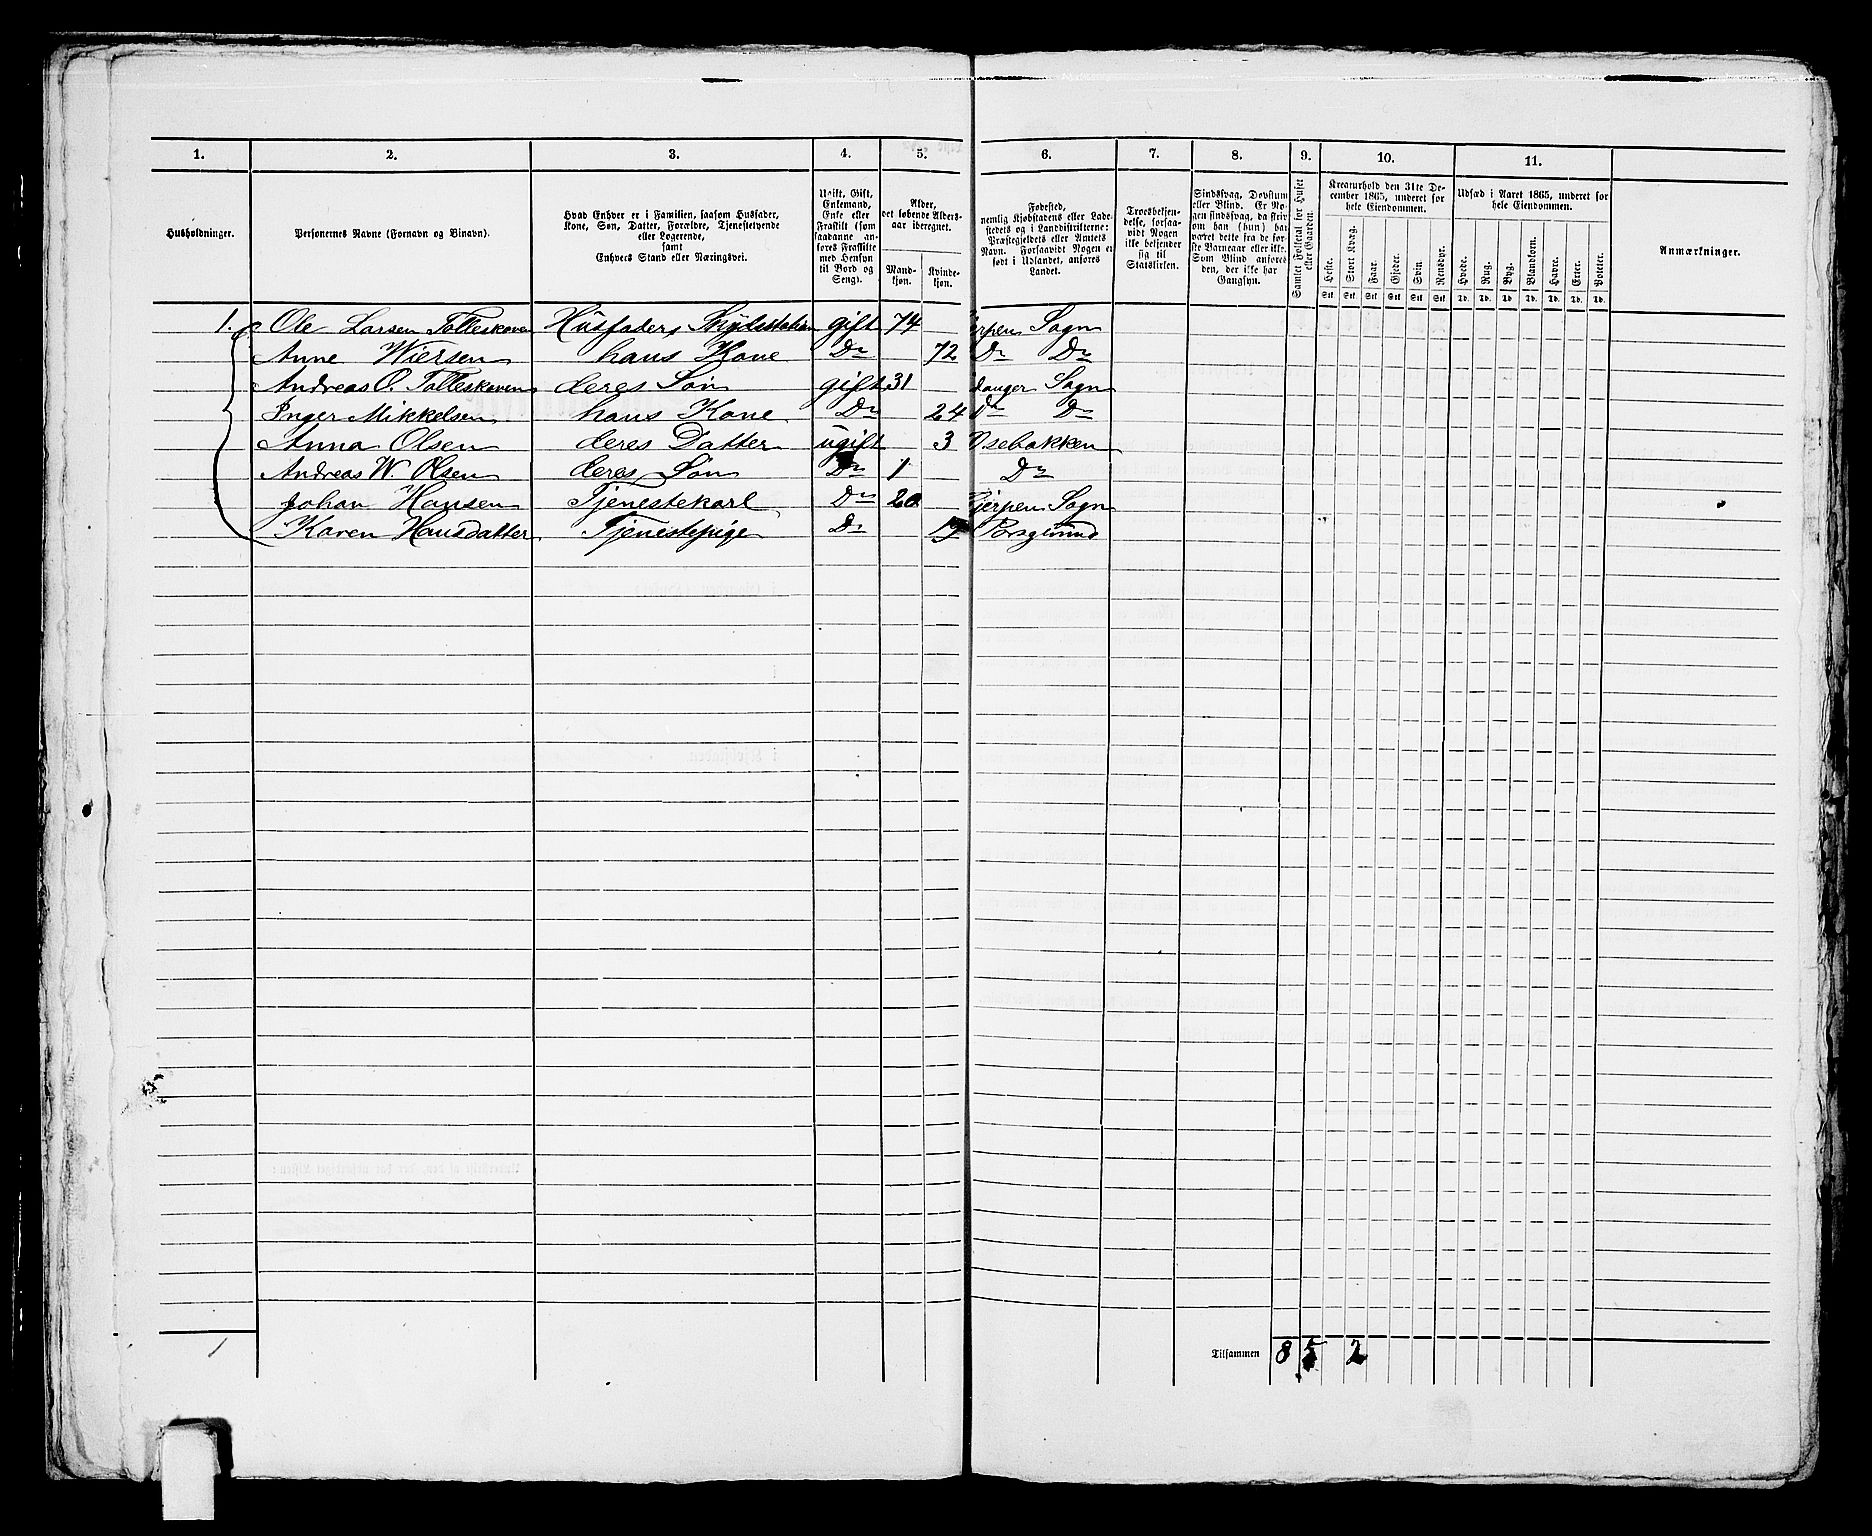 1. 2. 3. 4. 5. 6. 7. 8. 9. 10. 11.
Husholdninger.
Personernes Navne (Fornavn og Binavn).
Hvad Enhver er i Familien, saasom Husfader,
Kone, Søn, Datter, Forældre, Tjenestetyende
eller Logerende,
samt
Enhvers Stand eller Næringsvei.
Ugift, Gift,
Enkemand,
Enke eller
Fraskilt (som
saadanne an-
føres Fraskilte
med Hensyn
til Bord og
Seng).
Alder,
det løbende Alders-
aar iberegnet.
Mand-
kjøn.
Kvinde-
kjøn.
Fødested,
nemlig Kjøbstadens eller Lade-
stedets og i Landdistrikterne:
Præstegjeldets eller Amtets
Navn. Forsaavidt Nogen er
født i Udlandet, anføres
Landet.
Troesbekjen-
delse, forsaa-
vidt Nogen
ikke bekjender
sig til
Statskirken.
Sindssvag, Døvstum
eller Blind. Er No-
gen sindssvag, da skriv
om han (hun) har
været dette fra de før-
ste Barneaar eller ikke.
Som Blind anføres
den, der ikke har
Gangsyn.
Samlet Folketal for Huset
eller Gaarden.
Kreaturhold den 31te De-
cember 1865, underet for
hele Eiendommen.
Heste. Stort Kvæg. Faar. Gjeder. Svin. Rensdyr.
Stk Stk Stk Stk Stk Stk
Udsæd i Aaret 1865, underet for
hele Eiendommen.
Hvede. Rug. Byg. Blandkorn. Havre. Erter. Poteter.
Td. Td. Td. Td. Td. Td. Td.
Anmærkninger.
1. Ole Larsen Tolleskoven Husfader, gift 74 erpen Sogn
Anne Wiersen hans Kone Do 72 Do Do
Andreas O. Tolleskoven deres Søn gift 31 danger Sogn
Inger Mikkelsen hans Kone Do 24 Do Do
Anna Olsen deres Datter ugift 3 Osebakken
Andreas W. Olsen deres Søn Do 1 Do
Johan Hansen Tjenestekarl Do 20 jerpen Sogn
Karen Hansdatter Tjenestepige Do Porsgrund
1
Tilsammen 8 5 2